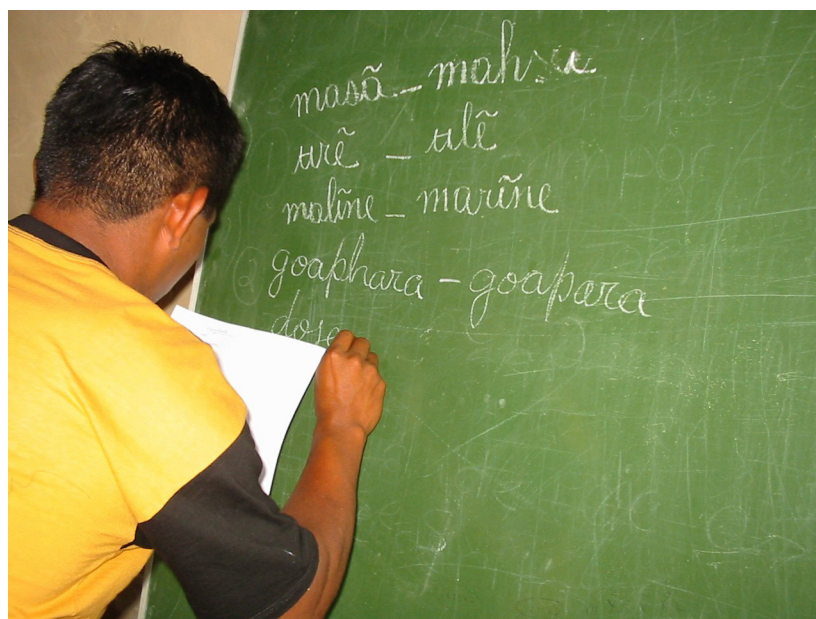 masã –
ʉrẽ – ʉlẽ
malĩne – marĩne
goaphara – goapara
dose